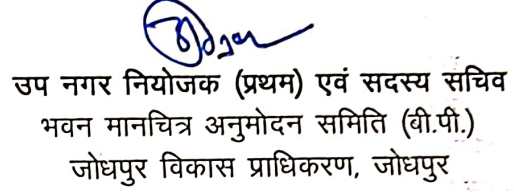 उप नगर नियोजक (प्रथम) एवं सदस्य सचिव
भवन मानचित्र अनुमोदन समिति (बी.पी.)
जोधपुर विकास प्राधिकरण, जोधपुर